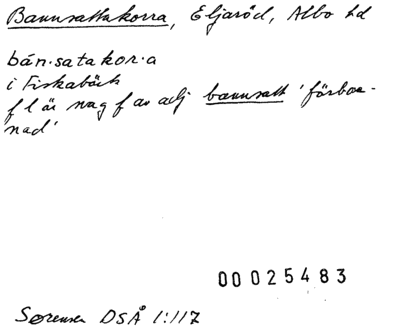 Bannsattakorra, Eljaröd, Albo hd
bán·sata kor·a
i Fiskabäck
f l är nog f av adj bannsatt 'förban-
nad'
00025483
Sørensen DSÅ 1:117